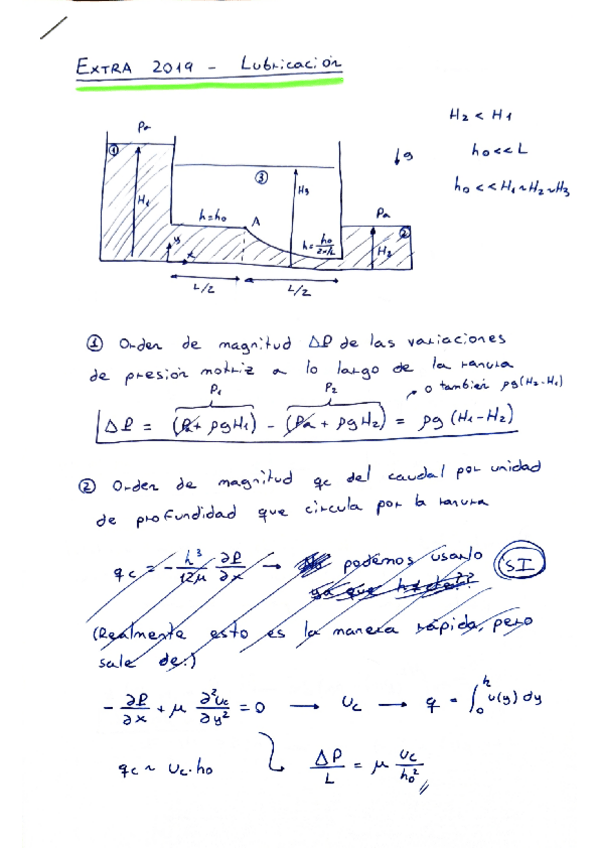 EXTRA 2019 - Lubricación
H2 < H1
h0 << L
h0 << H1 ~ H2 ~ H3
Pa
①
H1
h=h0
A
③
H3
↓g
Pa
②
H2
h = h0/(2x/L)
y
x
L/2
L/2
① Orden de magnitud ΔP de las variaciones
de presión motriz a lo largo de la ranura
P1
P2
→ o también ρg(H2-H1)
ΔP = (Pa + ρgH1) - (Pa + ρgH2) = ρg (H1-H2)
② Orden de magnitud qc del caudal por unidad
de profundidad que circula por la ranura
qc = - h³/12μ ∂P/∂x → No podemos usarlo SI
ya que
(Realmente esto es la manera rápida, pero
sale de:)
- ∂P/∂x + μ ∂²uc/∂y² = 0 → uc → q = ∫₀ʰ u(y) dy
qc ~ uc · h0
ΔP/L = μ uc/h0²